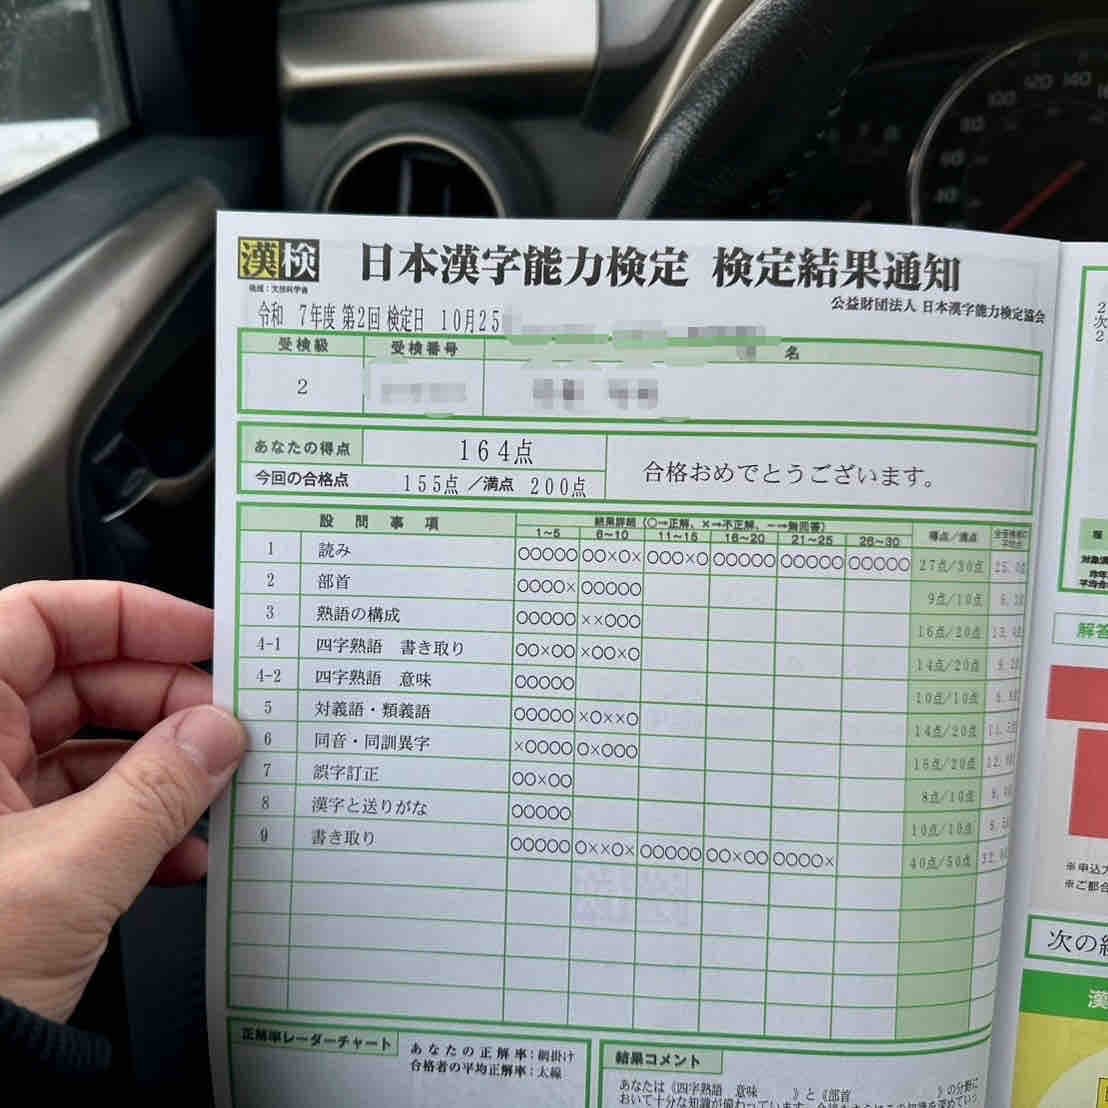 漢検
日本漢字能力検定 検定結果通知
後援:文部科学省
公益財団法人 日本漢字能力検定協会
令和 7年度 第2回 検定日 10月25
受検級 受検番号 名
2
あなたの得点 164点
合格おめでとうございます。
今回の合格点 155点 /満点 200点
設問事項 結果詳細(○→正解、×→不正解、ー→無回答) 得点/満点
1~5 6~10 11~15 16~20 21~25 26~30
1 読み ○○○○○ ○○×○× ○○○×○ ○○○○○ ○○○○○ ○○○○○ 27点/30点
2 部首 ○○○○× ○○○○○ 9点/10点
3 熟語の構成 ○○○○○ ××○○○ 16点/20点
4-1 四字熟語 書き取り ○○×○○ ×○○×○ 14点/20点
4-2 四字熟語 意味 ○○○○○ 10点/10点
5 対義語・類義語 ○○○○○ ×○××○ 14点/20点
6 同音・同訓異字 ×○○○○ ○×○○○ 16点/20点
7 誤字訂正 ○○×○○ 8点/10点
8 漢字と送りがな ○○○○○ 10点/10点
9 書き取り ○○○○○ ○××○× ○○○○○ ○○×○○ ○○○○× 40点/50点
正解率レーダーチャート
あなたの正解率:網掛け
合格者の平均正解率:太線
結果コメント
あなたは《四字熟語 意味 》と《部首 》の分野に
おいて十分な知識が備わっています
解答
※申込
※ご都合
次の
漢
120 140
100
80
60
40